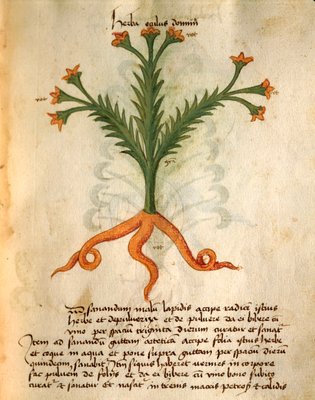 herba oculus domini
Ad sanandum malum lapidis accipe radicem istius
herbe et depulveriza et de pulvere da ei bibere cum
vino per spacium triginta dierum curatur et sanatur
Item ad sanandum guttam arteticam accipe folia istius herbe
et coque in aqua et pone supra guttam per spacium dierum
quindecim, sanabitur. Item si quis haberet vermes in corpore
fac pulverem de foliis et da ei bibere cum vino bono subito
curatur et sanatur et nascitur in terrenis macris petrosis et calidis